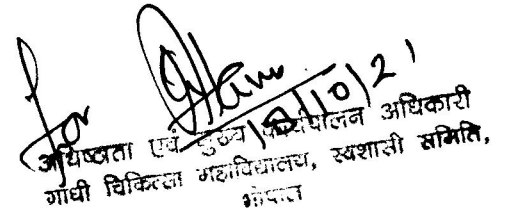 for
18/10/21
अधिष्ठाता एवं मुख्य कार्यपालन अधिकारी
गांधी चिकित्सा महाविद्यालय, स्वशासी समिति,
भोपाल